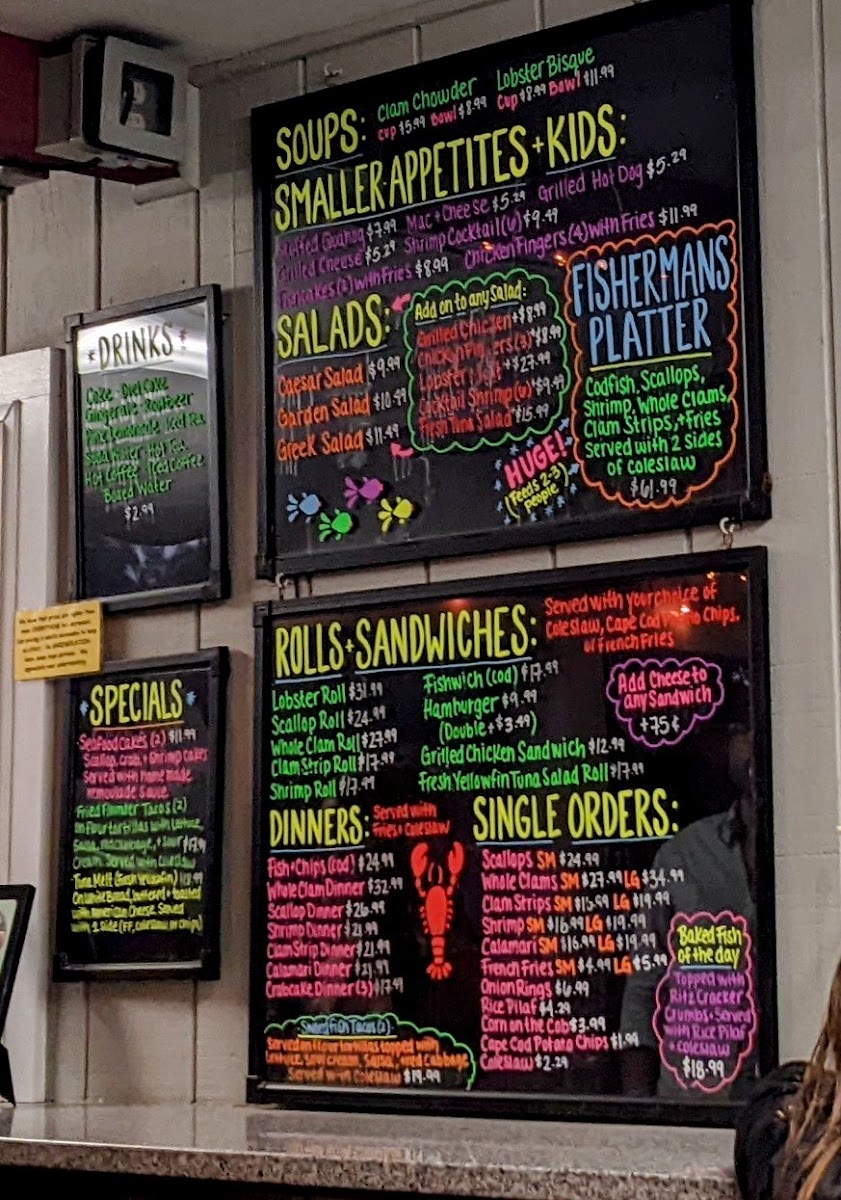 SOUPS:
Clam Chowder
Cup $5.99 Bowl $8.99
Lobster Bisque
Cup $8.99 Bowl $11.99
SMALLER APPETITES + KIDS:
Stuffed Quahog $7.99 Mac + Cheese $5.29 Grilled Hot Dog $5.29
Grilled Cheese $5.29 Shrimp Cocktail (6) $9.49
Pancakes (2) with Fries $8.99 Chicken Fingers (4) with Fries $11.99
SALADS:
Caesar Salad $9.99
Garden Salad $10.99
Greek Salad $11.49
Add on to any Salad:
Grilled Chicken + $8.99
Chicken Fingers (3) + $8.99
Lobster Meat + $27.99
Cocktail Shrimp (6) + $9.49
Fresh Tuna Salad + $15.99
HUGE!
(Feeds 2-3
people)
FISHERMANS
PLATTER
Codfish, Scallops,
Shrimp, Whole Clams,
Clam Strips, + Fries
Served with 2 sides
of coleslaw
$61.99
DRINKS
Coke Diet Coke
Gingerale Rootbeer
Pink Lemonade Iced Tea
Soda Water Hot Tea
Hot Coffee Iced Coffee
Boxed Water
$2.99
SPECIALS
Seafood Cakes (2) $11.99
Scallop, Crab, + Shrimp Cakes
Served with Home Made
remoulade Sauce
Fried Flounder Tacos (2)
on flour tortillas with Lettuce,
Salsa, + Sour
Cream. Served with Coleslaw
Tuna Melt (Fresh Yellowfin)
On White Bread, buttered + toasted
with American Cheese. Served
with 1 side (FF, coleslaw, or chips)
ROLLS + SANDWICHES:
Served with your choice of
Coleslaw, Cape Cod Potato Chips,
or French Fries
Lobster Roll $31.99
Scallop Roll $24.99
Whole Clam Roll $27.99
Clam Strip Roll $17.99
Shrimp Roll $17.99
Fishwich (cod) $17.99
Hamburger $9.99
(Double + $3.49)
Grilled Chicken Sandwich $12.99
Fresh Yellowfin Tuna Salad Roll $17.99
Add Cheese to
any Sandwich
+75¢
DINNERS:
Served with
Fries + Coleslaw
Fish + Chips (cod) $24.99
Whole Clam Dinner $32.99
Scallop Dinner $26.99
Shrimp Dinner $21.99
Clam Strip Dinner $21.99
Calamari Dinner $21.99
Crabcake Dinner (3) $17.99
Swordfish Tacos (2)
Served on flour tortillas topped with
Lettuce, sour cream, Salsa, + red Cabbage
Served with Coleslaw $19.99
SINGLE ORDERS:
Scallops SM $24.99
Whole Clams SM $27.99 LG $34.99
Clam Strips SM $15.99 LG $19.99
Shrimp SM $16.99 LG $19.99
Calamari SM $16.99 LG $19.99
French Fries SM $4.99 LG $5.99
Onion Rings $6.99
Rice Pilaf $4.29
Corn on the Cob $3.99
Cape Cod Potato Chips $1.99
Coleslaw $2.29
Baked Fish
of the day
Topped with
Ritz Cracker
Crumbs + Served
with Rice Pilaf
+ coleslaw
$18.99